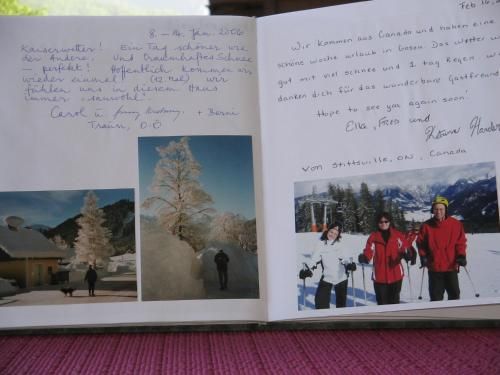 8. - 14. Jän. 2006
Kaiserwetter! Ein Tag schöner wie
der Andere. Und traumhafter Schnee
- perfekt! Hoffentlich kommen wir
wieder einmal. (12. Mal) wir
fühlen uns in diesem Haus
immer "sauwohl".
Carol u. + Berni
Traun, O.Ö
Feb 16,
Wir kommen aus Canada und haben eine
schöne woche urlaub in Gosau. Das wetter w
gut mit viel schnee und 1 tag Regen. w
danken dich für das wunderbare Gastfreund
Hope to see you again soon!
Ella, Fred und
Von Stittsville, ON, Canada